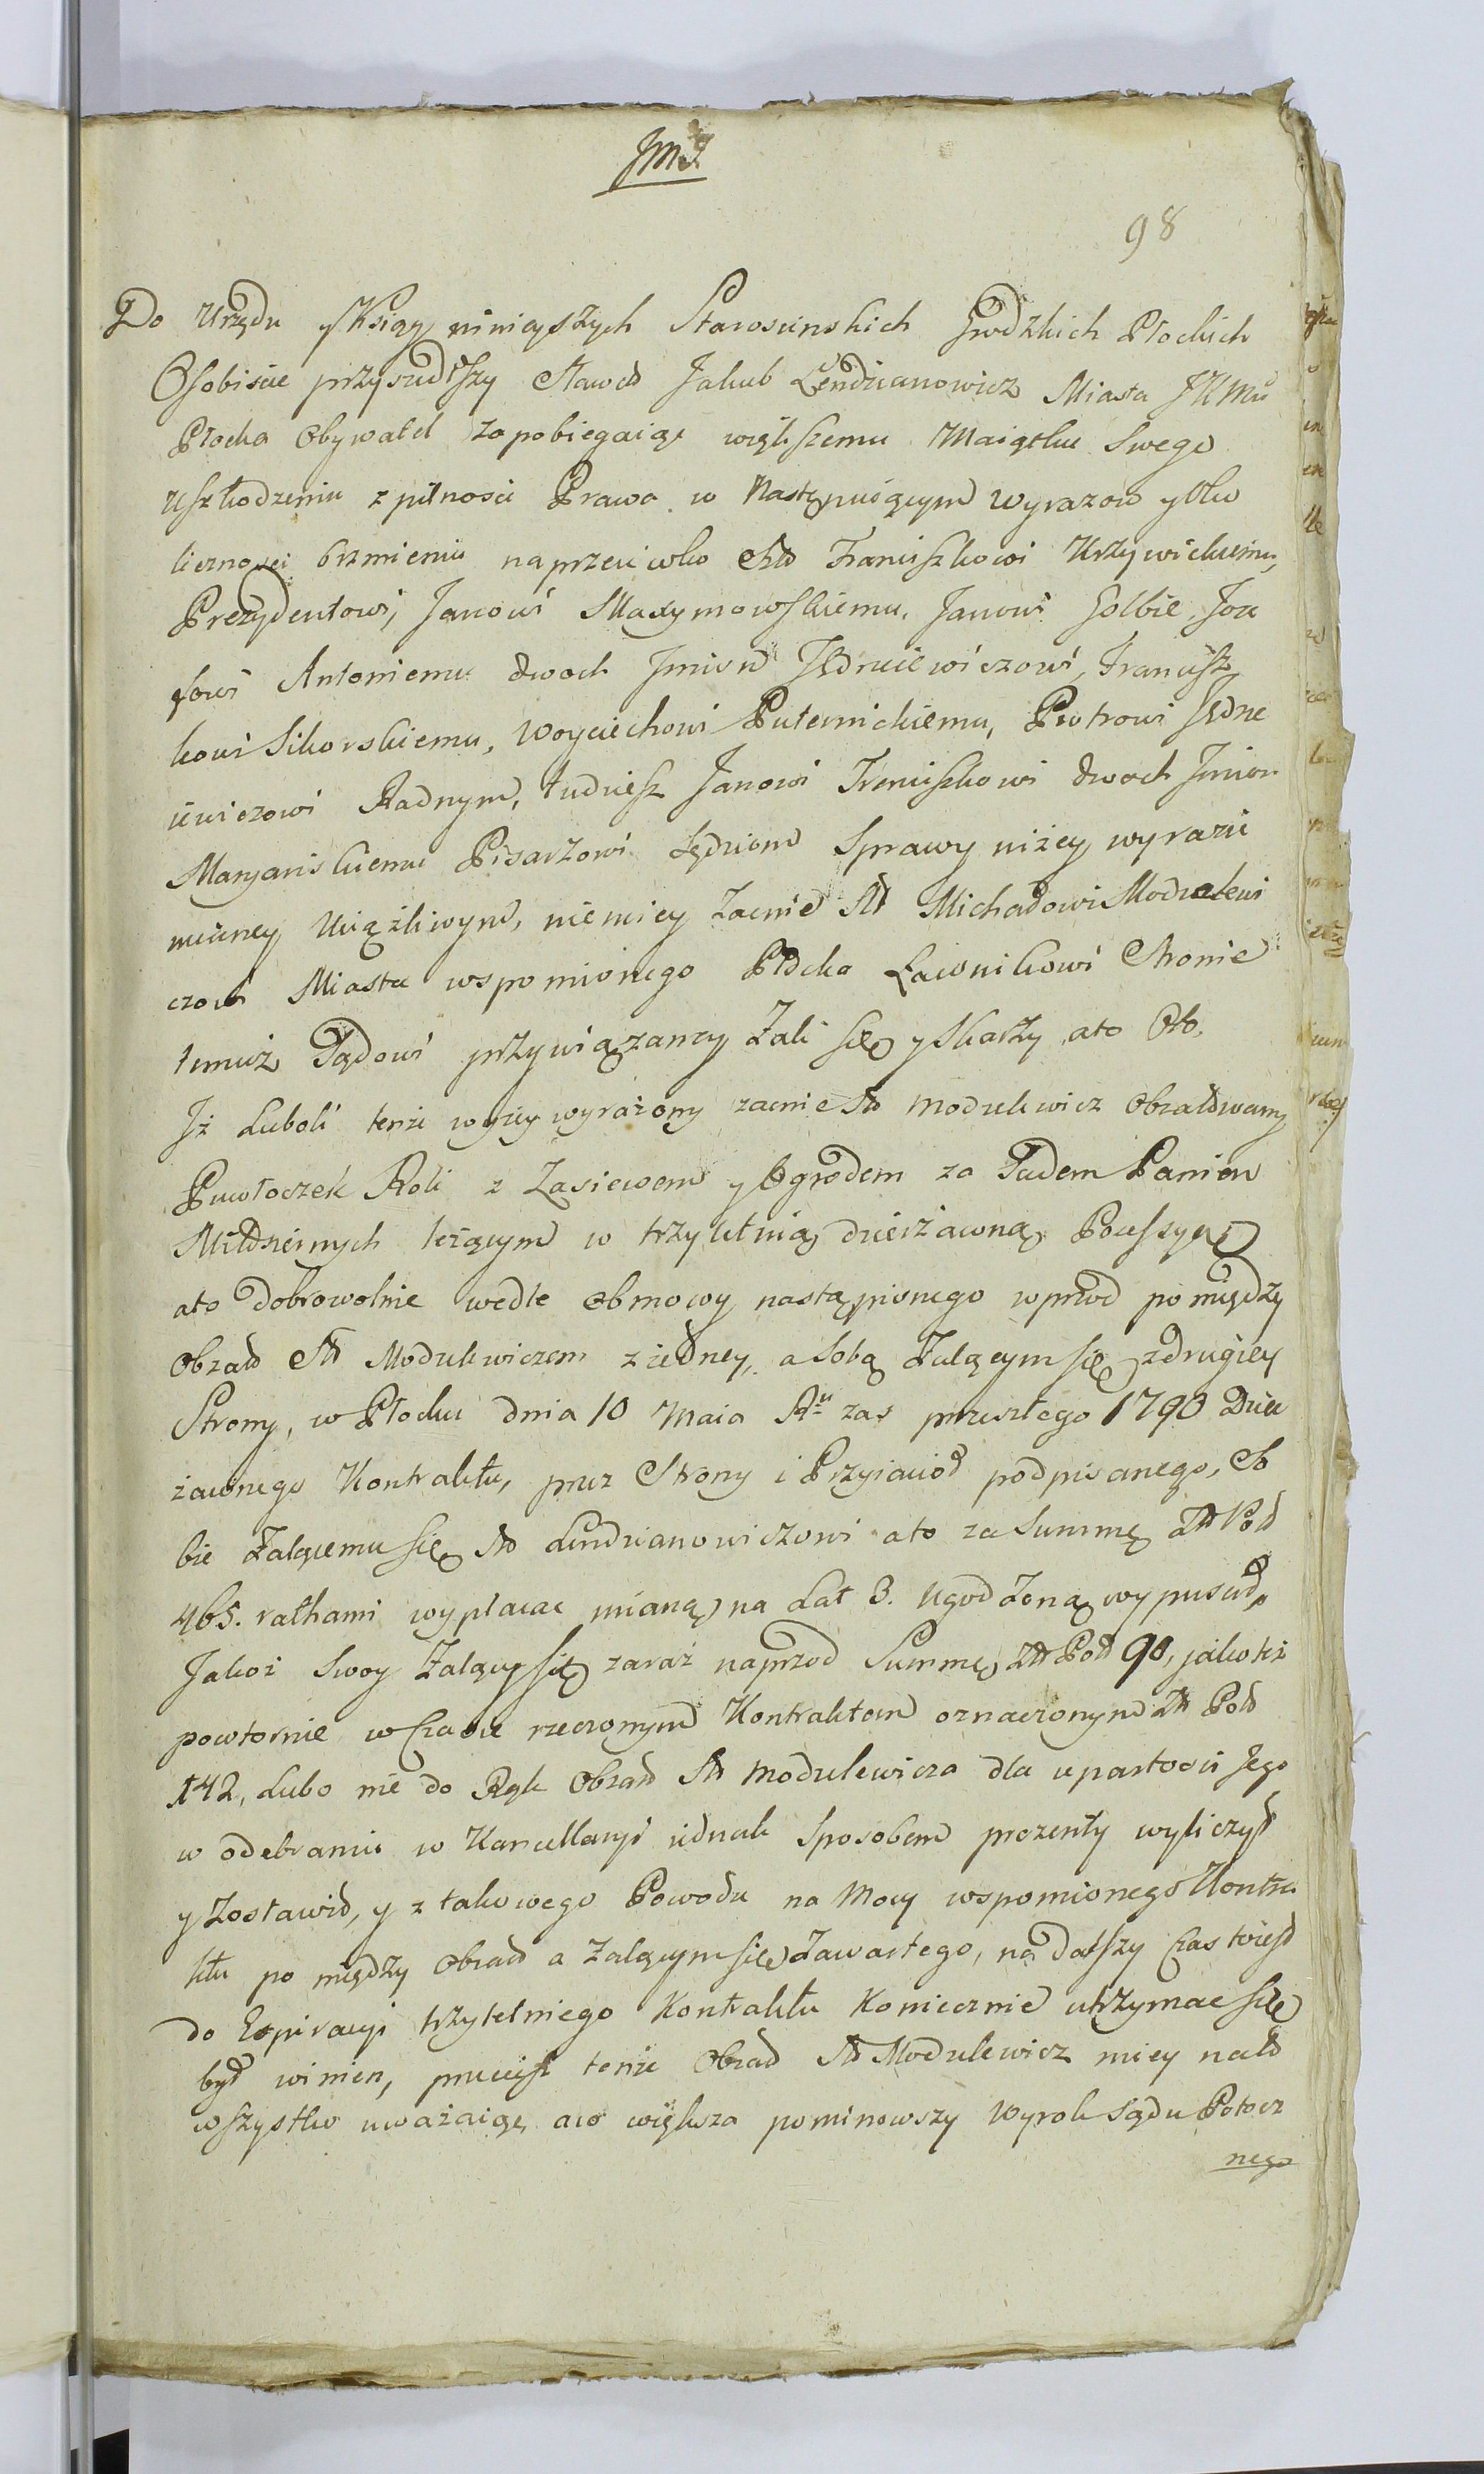 98
Do Urzędu y Ksiąg niniejszych Starosciinskich Grodzkich Płockich
Osobiscie przyszedłszy Sławetd Jakub Lendzianowicz Miasta JKMci
Płocka Obywatel zapobiegaiąc większemu Maiątku Swego
uszkodzeniu z pilnosci Prawa w Następuiącym wyrazow y Oko
licznosci brzmieniu naprzeciwko Franciszkowi Krzywickiemu,
Prezydentowi, Janowi Maxymowskiemu, Janowi Golbie, Joze
fowi Antoniemu dwoch Jmion Jędrzeiewiczowi, Francisz
kowi Sikorskiemu, Woyciechowi Puternickiemu, Piotrowi Jędrze
iewiczowi Radnym, tudziesz Janowi Franciszkowi dwoch Jmion
Maryanskiemu Pisarzowi Sędziom Sprawy niżey wyrazic
mianey Uciążliwym, niemniey zacnie Sł Michałowi Modzelewi
czowi Miasta wspomnionego Płocka Ławnikowi Stronie
temuż Sądowi przywiązaney Żali się y Skarży ato Oto.
Jż Luboli tenże wyżey wyrażony zacnie Sł Modzelewicz Obżałowany
Puwłoczek Roli z Zasiewem y Ogrodem za Sadem Panien
Miłosiernych leżącym w trzyletnią dzierżawną Possessyą
ato dobrowolnie wedle obmowy nastąpionego wprzod pomiędzy
Obżał Sł Modzelewiczem z iedney, a Sobą Żalącym się z drugiey
Strony, w Płocku dnia 10 Maia Ru zas przeszłego 1790 Dzier
żawnego Kontraktu, przez Strony i Przyiacioł podpisanego, So
bie Żalącemu się Sł Lendzianowiczowi ato za Summę Zł Pol
465. rathami wypłacac mianą na Lat 3. Ugodzoną wypuscił,
Jakoż Swoy Żalący się zaraz naprzod Summę Zł Pol 90, jako też
powtornie w Czasie rzeczonym Kontraktem oznaczonym Zł Pol
142, Lubo nie do Rąk Obżał Sł Modzelewicza dla upartosci Jego
w odebraniu w Kancellaryi iednak Sposobem prezenty wyliczył
y Zostawił, y z takowego Powodu na Mocy wspomnionego Kontra
ktu pomiędzy Obżał a Żalącym się Zawartego, na dalszy Czas toiest
do Expiracyi trzyletniego Kontraktu Koniecznie utrzymac się
był winien, przecięż tenże Obżał Sł Modzelewicz niey nałd
wszystko uważaiąc, aco większa pominowszy Wyrok Sądu Potocz
nego